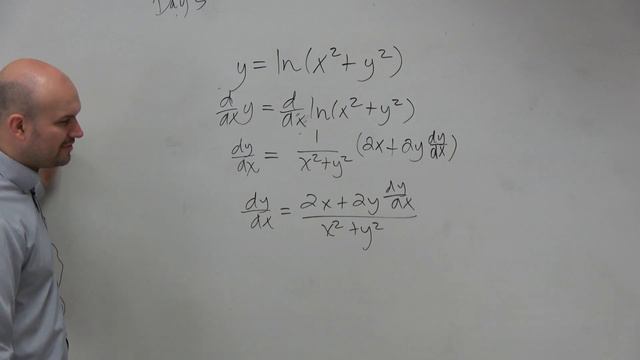 Day 3
y = ln(x² + y²)
d/dx y = d/dx ln(x² + y²)
dy/dx = 1/(x² + y²) (2x + 2y dy/dx)
dy/dx = (2x + 2y dy/dx)/(x² + y²)